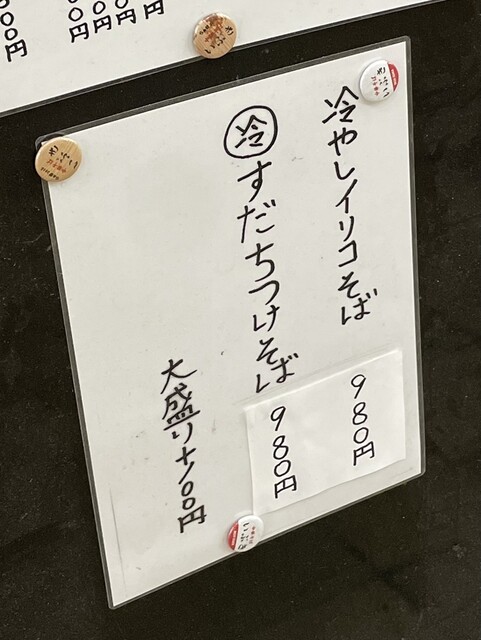 冷やしイリコそば
980円
㋹すだちつけそば
980円
大盛り+100円
円
円
円
円
円